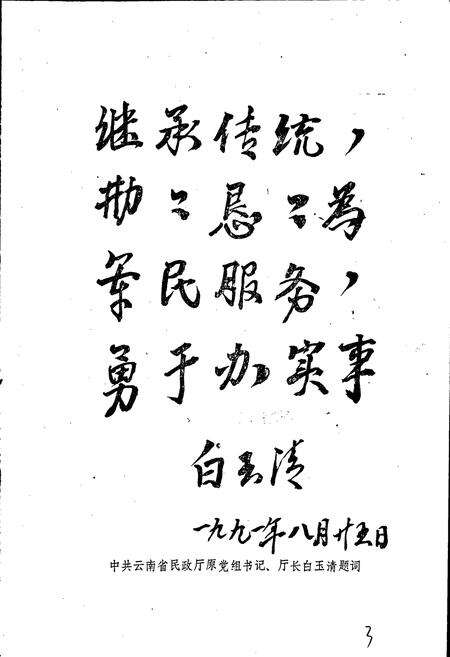 继承传统，
勤〻恳〻為
民服务，
勇于办实事
白玉清
一九九一年八月廿五日
中共云南省民政厅原党组书记、厅长白玉清题词
3